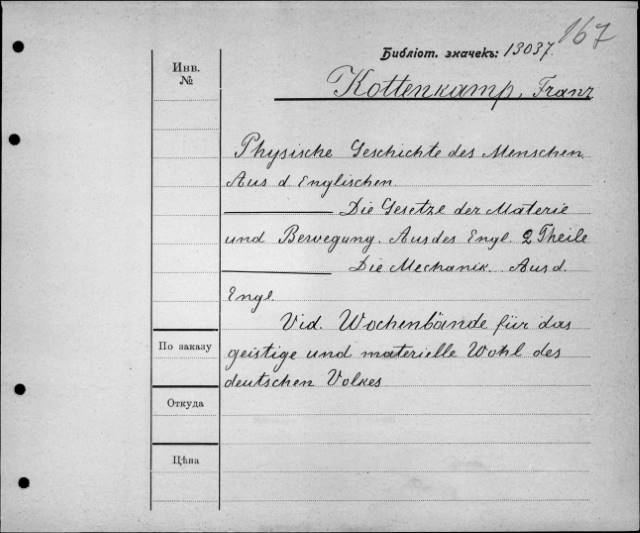 167
Библіот. значекъ: 13037.
Инв.
№
Kottenkamp, Franz
Physische Geschichte des Menschen.
Aus d Englischen.
Die Gesetze der Materie
und Bewegung. Aus des Engl. 2 Theile
Die Mechanik. Aus d.
Engl.
Vid. Wochenbände für das
По заказу
geistige und materielle Wohl des
deutschen Volkes
Откуда
Цѣна